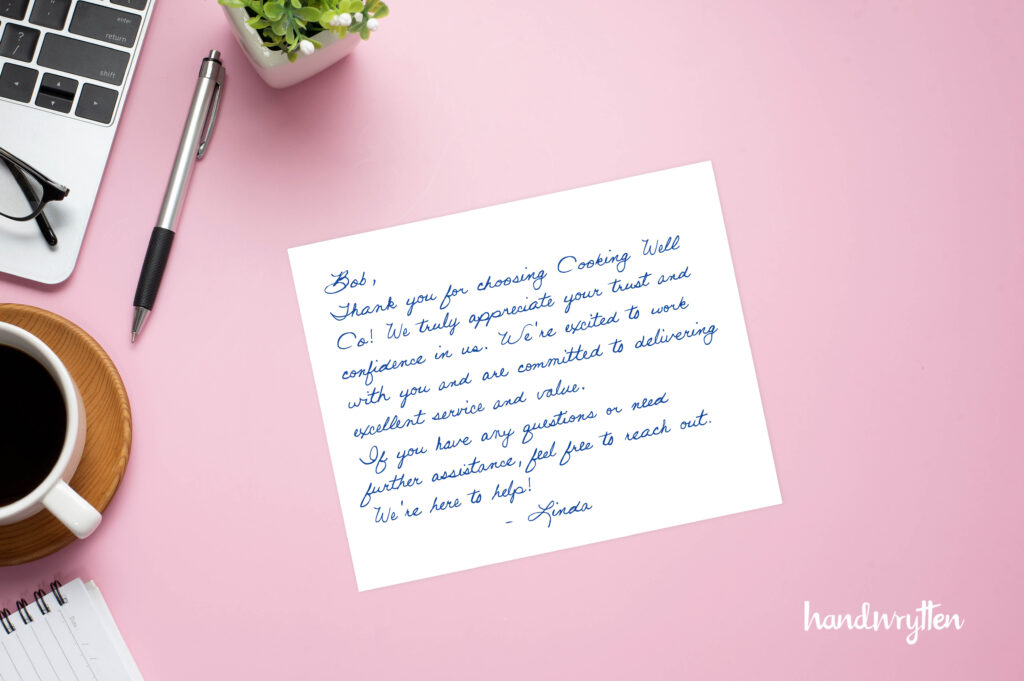 enter
return
shift
?
/
Bob,
Thank you for choosing Cooking Well
Co! We truly appreciate your trust and
confidence in us. We're excited to work
with you and are committed to delivering
excellent service and value.
If you have any questions or need
further assistance, feel free to reach out.
We're here to help!
- Linda
Date
handwrytten